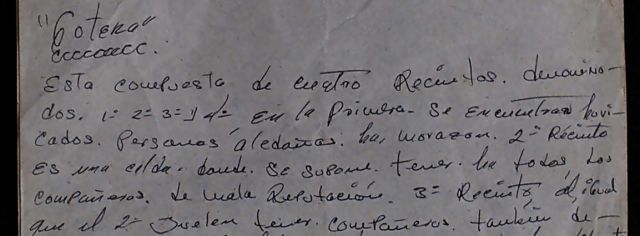 "Gotera"
ccccoccc.
Esta compuesta de cuatro Recintos. denomina-
dos. 1= 2= 3= y 4= En la Primera. Se encuentran hovi-
cados. Personas aledañas. ha, morazan. 2= Recinto
Es una celda. donde. Se supone. tener. ha todos Los
Compañeros. de mala Reputación. 3= Recinto al igual
que el 2= Suelen tener. Compañeros. también de-